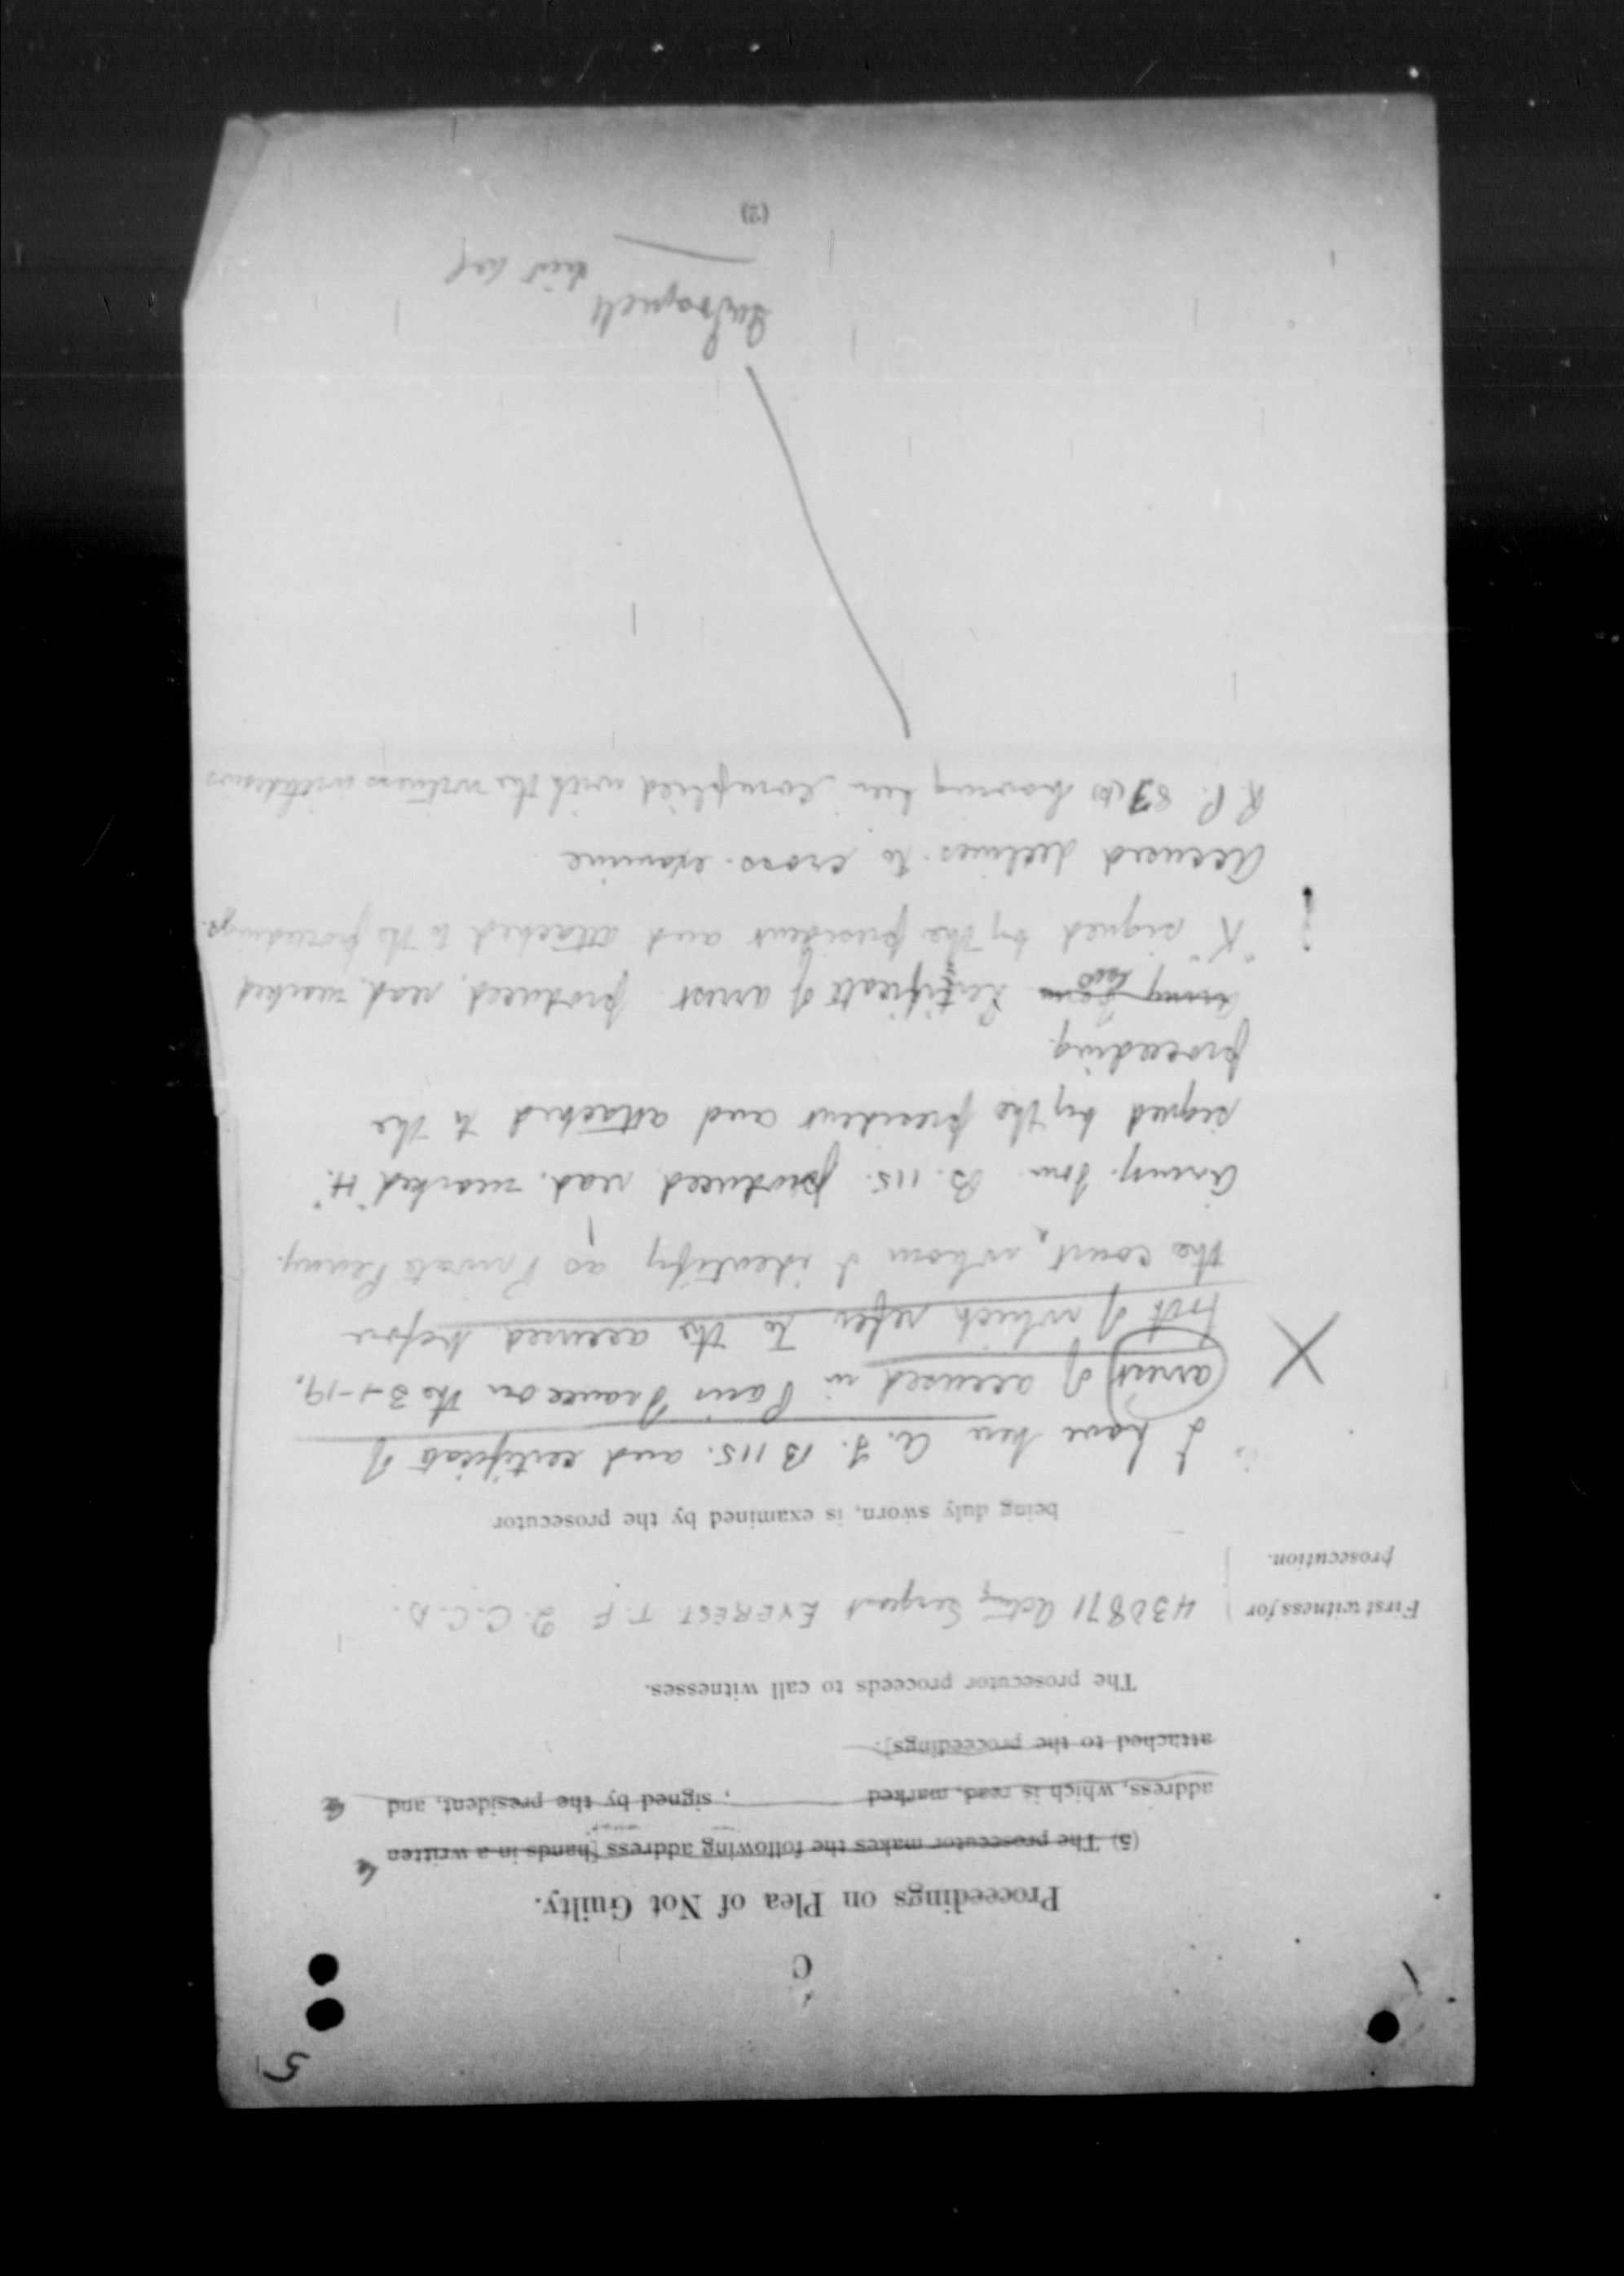 5
C
Proceedings on Plea of Not Guilty.
(5) The prosecutor makes the following address [hands in a written
address, which is read, marked , signed by the president, and
attached to the proceedings].
The prosecutor proceeds to call witnesses.
First witness for prosecution. 430871 Acting Sergeant EVEREST T. F 2. C. C. D.
being duly sworn, is examined by the prosecutor
I have here A. F. B 115. and certificate of
arrest of accused in Paris France on the 3-1-19,
both of which refer to the accused before
the court, whom I identify as Private Penny.
Army. Form B. 115. produced, read, marked "H"
signed by the president and attached to the
proceeding.
Army Form Certificate of arrest produced, read, marked
"K" signed by the president and attached to the proceedings.
Accused declines to cross-examine
R. P. 83(B) having been complied with the witness withdraws
Lieut Col
(2)